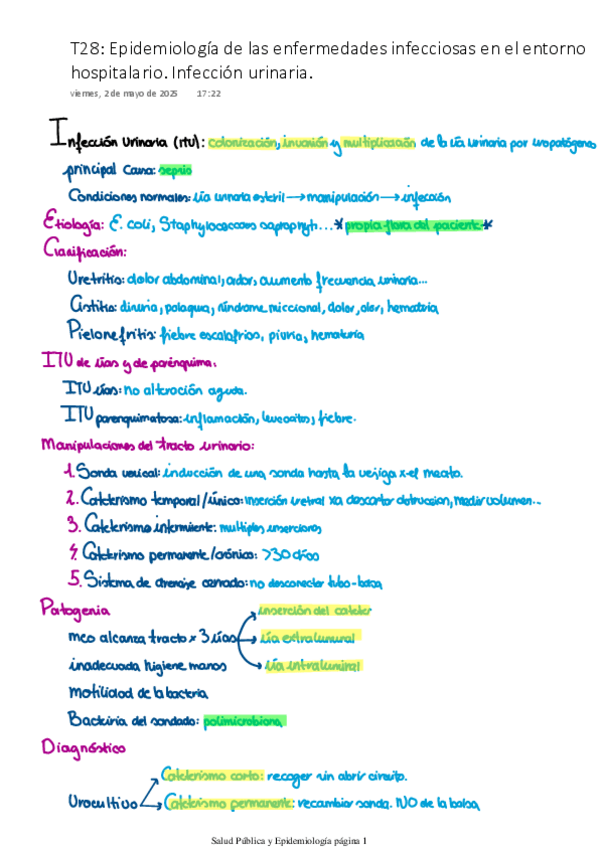 T28: Epidemiología de las enfermedades infecciosas en el entorno
hospitalario. Infección urinaria.
viernes, 2 de mayo de 2025 17:22
Infección Urinaria (ITU): colonización, invasión y multiplicación de la vía urinaria por uropatógeno
principal causa: sepsis
Condiciones normales: vía urinaria estéril → manipulación → infección
Etiología: E. coli, Staphylococcus saprophyti... *propia flora del paciente*
Clasificación:
Uretritis: dolor abdominal, ardor, aumento frecuencia urinaria...
Cistitis: disuria, polaquia, síndrome miccional, dolor, olor, hematuria
Pielonefritis: fiebre escalofríos, piuria, hematuria
ITU de vías y de parénquima:
ITU vías: no alteración aguda.
ITU parenquimatosa: inflamación, leucocitos, fiebre.
Manipulaciones del tracto urinario:
1. Sonda vesical: inducción de una sonda hasta la vejiga x el meato.
2. Cateterismo temporal/único: inserción uretral xa descartar obstrucción, medir volumen...
3. Cateterismo intermitente: multiples inserciones
4. Cateterismo permanente/crónico: >30 días
5. Sistema de drenaje cerrado: no desconectar tubo-bolsa
Patogenia
inserción del catéter
mco alcanza tracto x 3 vías
vía extraluminal
inadecuada higiene manos
vía intraluminal
motilidad de la bacteria
Bacteriuria del sondado: polimicrobiana
Diagnóstico
Cateterismo corto: recoger sin abrir circuito.
Urocultivo
Cateterismo permanente: recambiar sonda. NO de la bolsa
Salud Pública y Epidemiología página 1